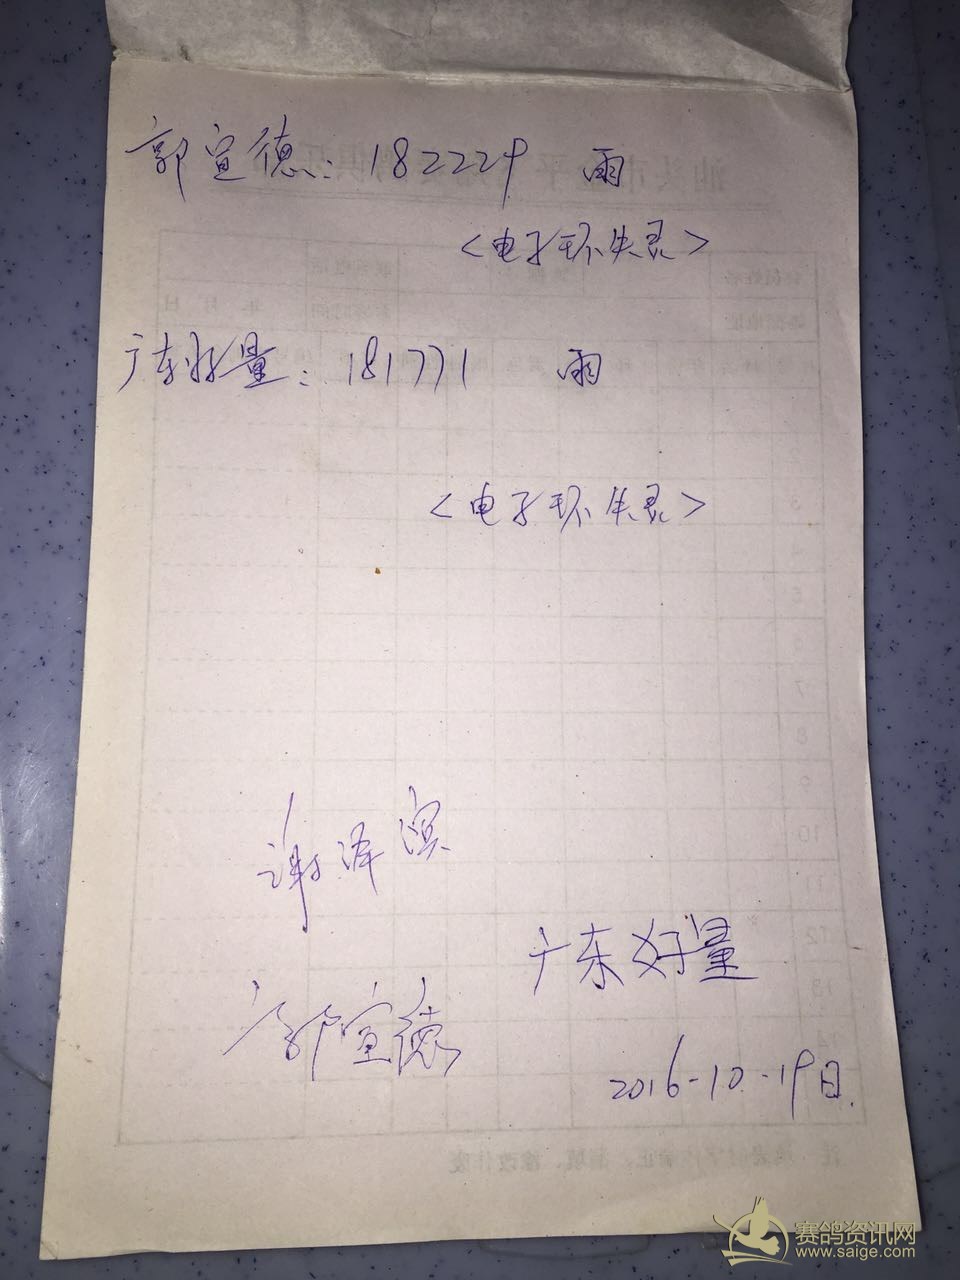 郭宣德：182229 雨
<电子环失灵>
广东好量：181771 雨
<电子环失灵>
谢泽溟
广东好量
郭宣德
2016-10-19日.
赛鸽资讯网
www.saige.com